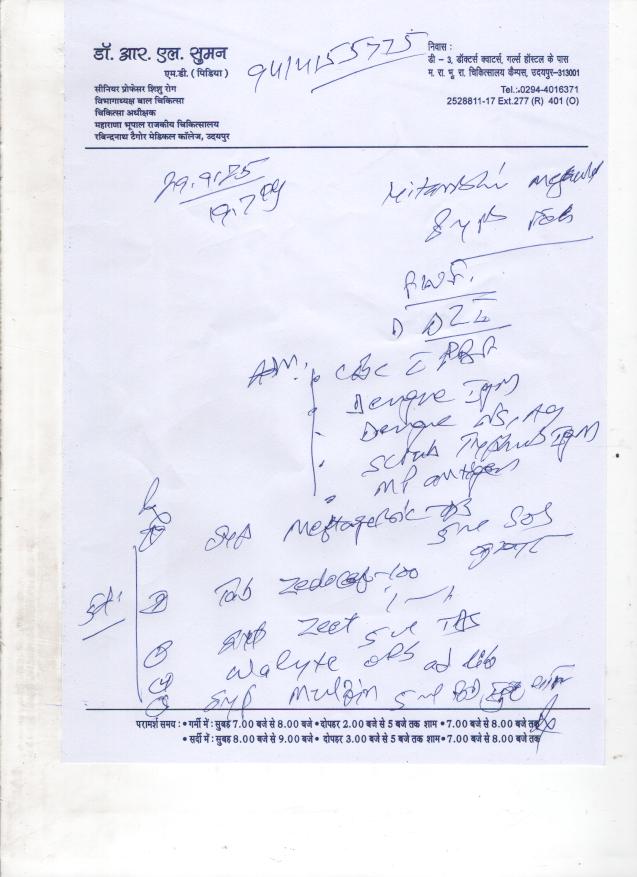 डॉ. आर. एल. सुमन
एम.डी. ( पिडिया )
सीनियर प्रोफेसर शिशु रोग
विभागाध्यक्ष बाल चिकित्सा
चिकित्सा अधीक्षक
महाराणा भूपाल राजकीय चिकित्सालय
रविन्द्रनाथ टैगोर मेडिकल कॉलेज, उदयपुर
9414155775
निवास :
डी - 3, डॉक्टर्स क्वाटर्स, गर्ल्स हॉस्टल के पास
म. रा. भू. रा. चिकित्सालय कैम्पस, उदयपुर-313001
Tel.:0294-4016371
2528811-17 Ext.277 (R) 401 (O)
29.9.25
19.7 kg
8 yrs
CBC
Dengue IgM
Dengue NS1 Ag
Scrub Typhus IgM
MP antigen
Rx
Syp Meftagesic DS
5ml SOS
Tab Zedocef-100
1-1
Syp Zeet 5ml TDS
Walyte ORS ad lib
Syp 5ml BD
परामर्श समय : • गर्मी में : सुबह 7.00 बजे से 8.00 बजे • दोपहर 2.00 बजे से 5 बजे तक शाम • 7.00 बजे से 8.00 बजे तक
• सर्दी में : सुबह 8.00 बजे से 9.00 बजे • दोपहर 3.00 बजे से 5 बजे तक शाम • 7.00 बजे से 8.00 बजे तक